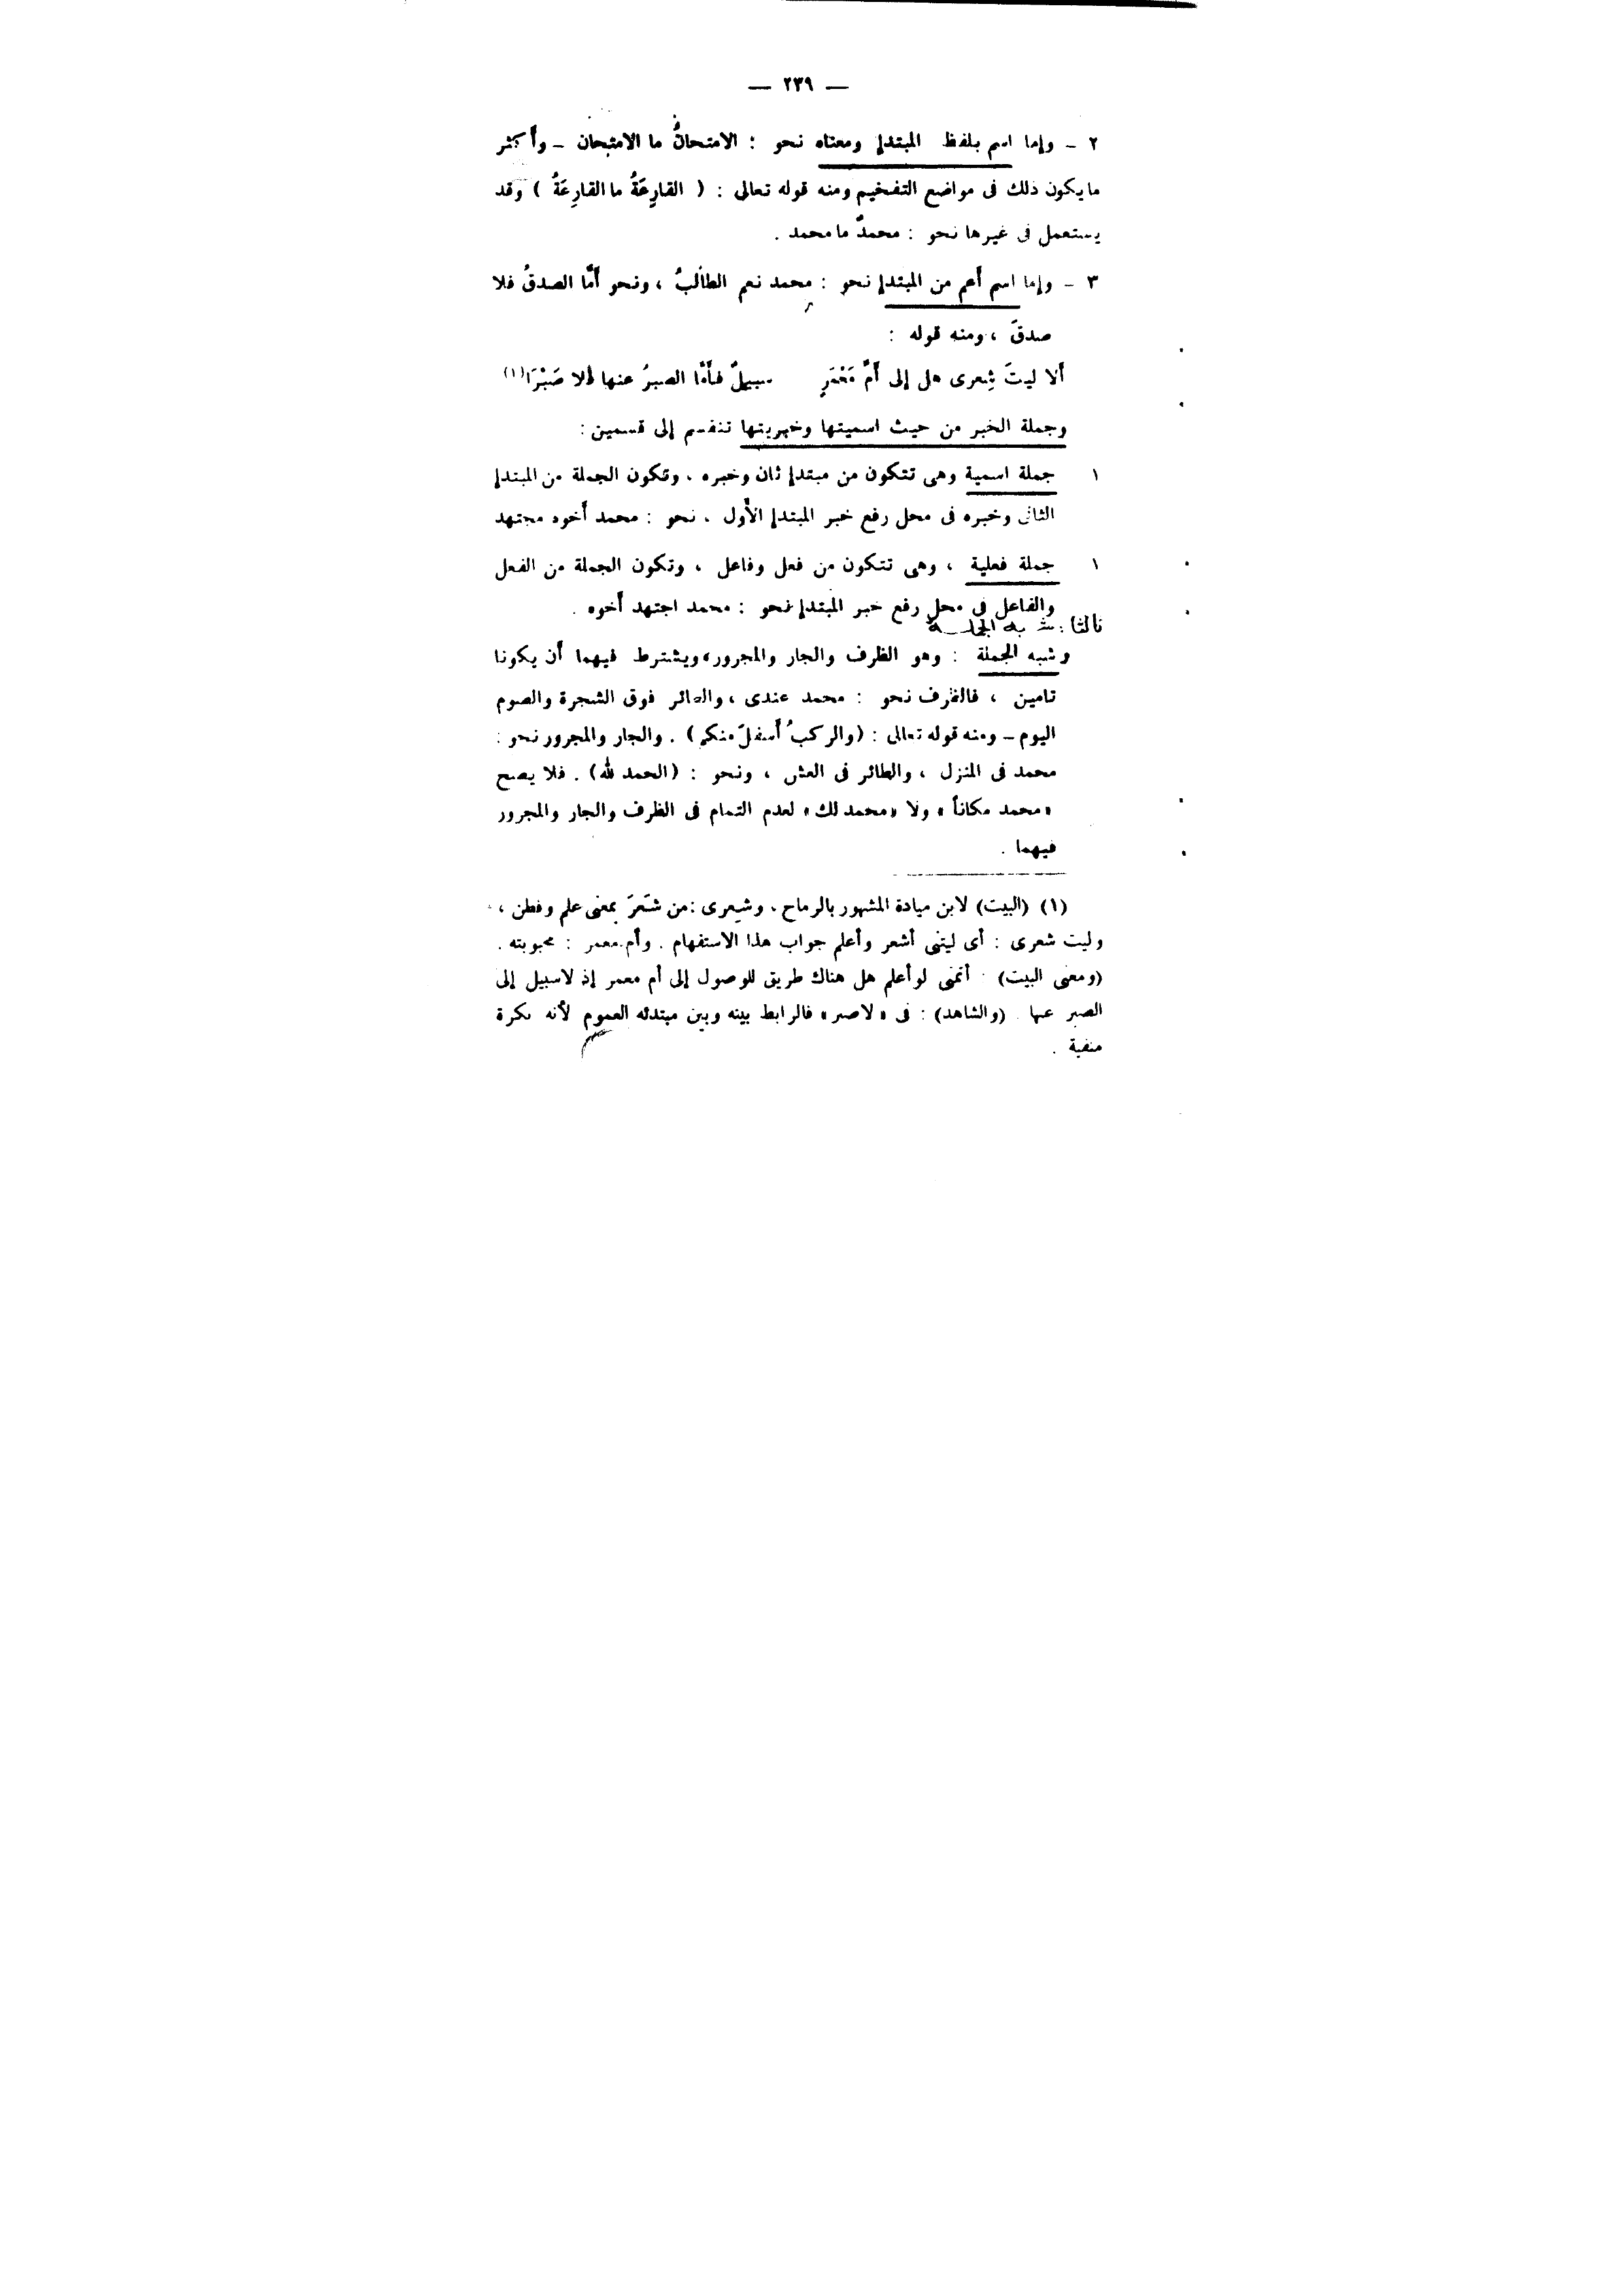 — ٢٣٩ —
٢ - وإما اسم بلفظ المبتدإ ومعناه نحو : الامتحانُ ما الامتحان - وأكثر
ما يكون ذلك فى مواضع التفخيم ومنه قوله تعالى : ( القارِعَةُ ما القارِعَةُ ) وقد
يستعمل فى غيرها نحو : محمدٌ ما محمد .
٣ - وإما اسم أعم من المبتدإ نحو : محمد نعم الطالبُ ، ونحو أمَّا الصدقُ فلا
صدقَ ، ومنه قوله :
ألا ليتَ شِعرى هل إلى أمِّ مَعْمَرٍ سبيلٌ فأمَّا الصبرُ عنها فلا صَبْرَا(١)
وجملة الخبر من حيث اسميتها وخبريتها تنقسم إلى قسمين :
١ جملة اسمية وهى تتكون من مبتدإ ثان وخبره ، وتكون الجملة من المبتدإ
الثانى وخبره فى محل رفع خبر المبتدإ الأول . نحو : محمد أخوه مجتهد
١ جملة فعلية ، وهى تتكون من فعل وفاعل ، وتكون الجملة من الفعل
والفاعل فى محل رفع خبر المبتدإ نحو : محمد اجتهد أخوه .
ثالثا : شبه الجملة
وشبه الجملة : وهو الظرف والجار والمجرور، ويشترط فيهما أن يكونا
تامين ، فالظرف نحو : محمد عندى ، والطائر فوق الشجرة والصوم
اليوم - ومنه قوله تعالى : (والركبُ أسفلَ منكم) . والجار والمجرور نحو :
محمد فى المنزل ، والطائر فى العش ، ونحو : (الحمد لله) . فلا يصح
« محمد مكاناً » ولا «محمد لك» لعدم التمام فى الظرف والجار والمجرور
فيهما .
(١) (البيت) لابن ميادة المشهور بالرماح ، وشعرى : من شَعَرَ بمعنى علم وفطن ،
وليت شعرى : أى ليتنى أشعر وأعلم جواب هذا الاستفهام . وأم معمر : محبوبته .
(ومعنى البيت) أتمنى لو أعلم هل هناك طريق للوصول إلى أم معمر إذ لا سبيل إلى
الصبر عنها . (والشاهد) : فى « لا صبر » فالرابط بينه وبين مبتدئه العموم لأنه نكرة
منفية .